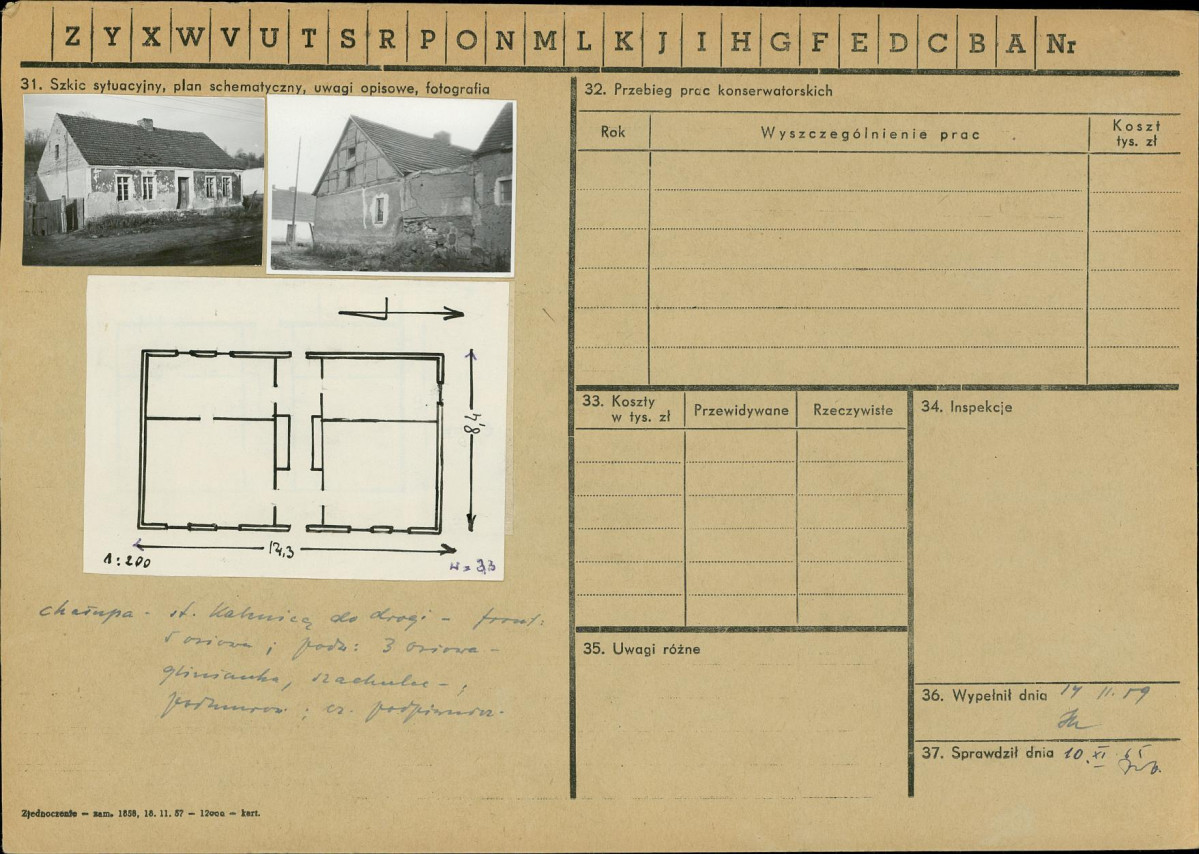 Z Y X W V U T S R P O N M L K J I H G F E D C B A Nr
31. Szkic sytuacyjny, plan schematyczny, uwagi opisowe, fotografia
8,4
14,3
1:200
chałupa - st. Kalenicą do drogi - front:
5 osiowa ; podw: 3 osiowa -
glinianka, szachulec - ;
podmurow. ; cz. podpiwnicz.
Zjednoczenie — zam. 1858, 18. 11. 57 — 12000 — kart.
32. Przebieg prac konserwatorskich
Rok
Wyszczególnienie prac
Koszt
tys. zł
33. Koszty
w tys. zł
Przewidywane
Rzeczywiste
34. Inspekcje
35. Uwagi różne
36. Wypełnił dnia 14 11. 59
37. Sprawdził dnia 10. XI 65